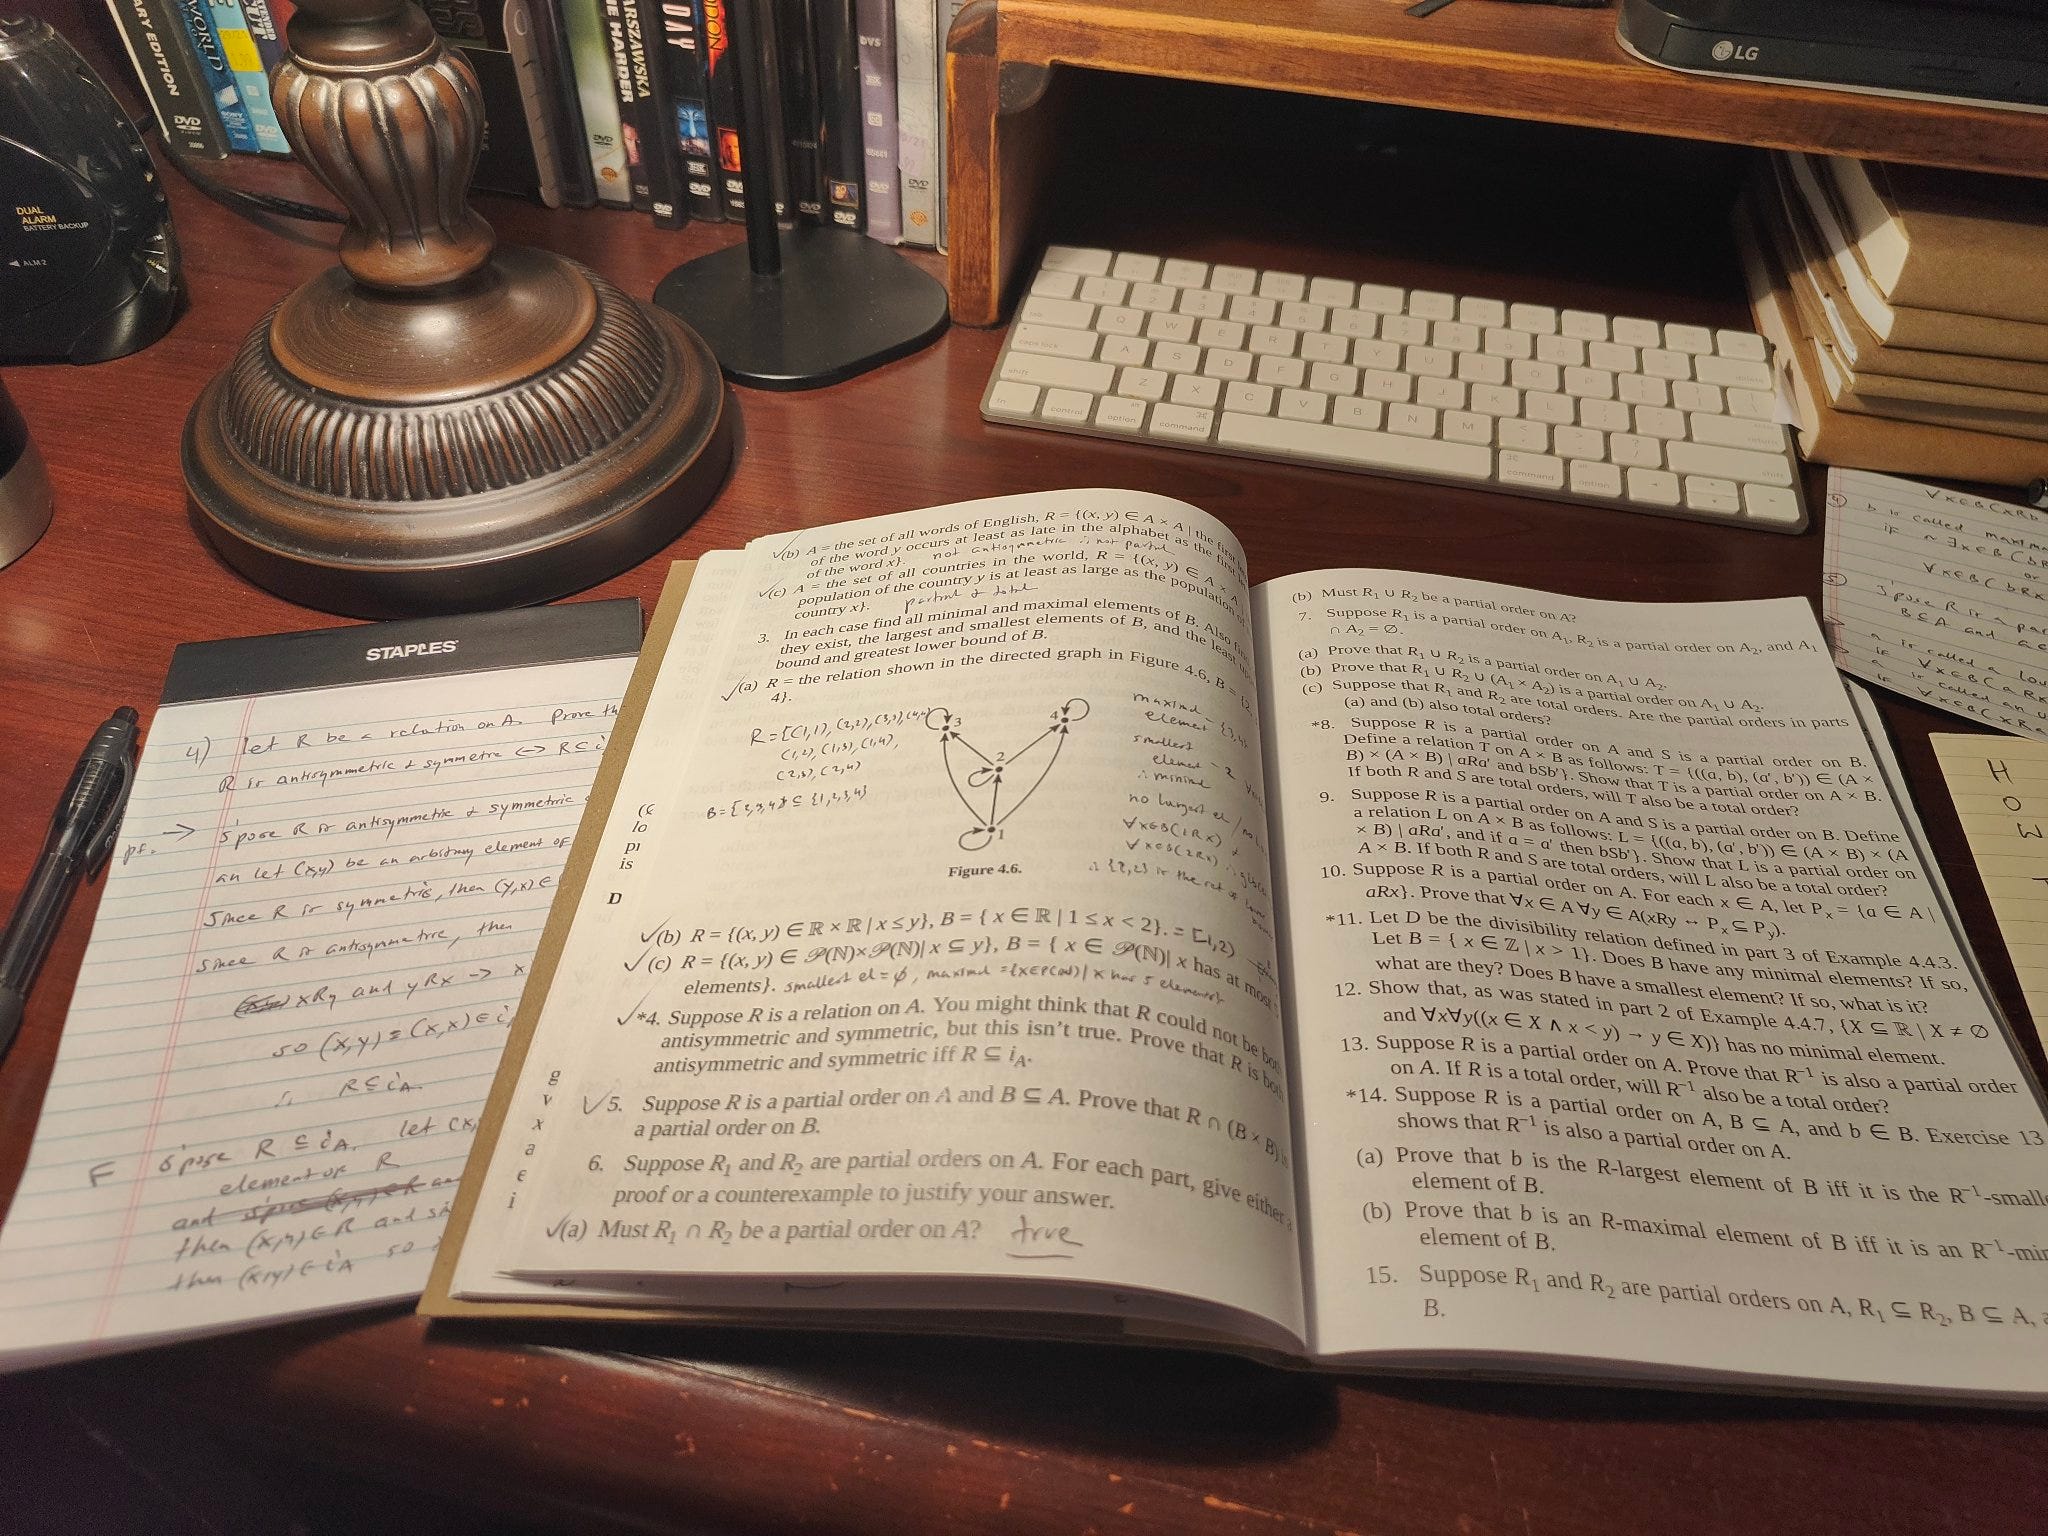 ARY EDITION
DVD
WORLD
DVD
THE HARDER
ARSZAWSKA
DAY
DVD
DVS
DVD
LG
DUAL
ALARM
BATTERY BACKUP
ALM 2
tab
caps lock
shift
fn
control
option
command
Q W E R T Y U I O P
A S D F G H J K L
Z X C V B N M
command
option
delete
return
shift
STAPLES
4) let R be a relation on A. Prove th
R is antisymmetric & symmetric ↔ R ⊆ i
pf. → S'pose R is antisymmetric & symmetric
an let (x,y) be an arbitrary element of
Since R is symmetric, then (y,x) ∈
Since R is antisymmetric, then
xRy and yRx → x
so (x,y) = (x,x) ∈ i
∴ R ⊆ iA
S'pose R ⊆ iA. let (x,
element of R
and
then (x,y) ∈ R and si
then (x,y) ∈ iA so
✓(b) A = the set of all words of English, R = {(x, y) ∈ A × A | the first
of the word y occurs at least as late in the alphabet as the first
of the word x}. not antisymmetric ∴ not partial
✓(c) A = the set of all countries in the world, R = {(x, y) ∈ A × A
population of the country y is at least as large as the population of
country x}. partial & total
3. In each case find all minimal and maximal elements of B. Also
they exist, the largest and smallest elements of B, and the least
bound and greatest lower bound of B.
✓(a) R = the relation shown in the directed graph in Figure 4.6, B = {2,
4}.
R = {(1,1), (2,2), (3,3), (4,4)
(1,2), (1,3), (1,4),
(2,3), (2,4)
B = {2,3,4} ⊆ {1,2,3,4}
3
4
2
1
Figure 4.6.
maximal
element = {3,4}
smallest
element - 2
∴ minimal
no largest el
∀x∈B(1Rx)
∀x∈B(2Rx)
∴ {1,2} is the set of lower
D
✓(b) R = {(x, y) ∈ ℝ × ℝ | x ≤ y}, B = { x ∈ ℝ | 1 ≤ x < 2}. = [1,2)
✓(c) R = {(x, y) ∈ 𝒫(ℕ)×𝒫(ℕ)| x ⊆ y}, B = { x ∈ 𝒫(ℕ)| x has at most 5
elements}. smallest el = ∅, maximal = {x∈P(N) | x has 5 elements}
✓*4. Suppose R is a relation on A. You might think that R could not be both
antisymmetric and symmetric, but this isn't true. Prove that R is both
antisymmetric and symmetric iff R ⊆ iA.
✓5. Suppose R is a partial order on A and B ⊆ A. Prove that R ∩ (B × B) is
a partial order on B.
6. Suppose R1 and R2 are partial orders on A. For each part, give either a
proof or a counterexample to justify your answer.
✓(a) Must R1 ∩ R2 be a partial order on A? true
(b) Must R1 ∪ R2 be a partial order on A?
7. Suppose R1 is a partial order on A1, R2 is a partial order on A2, and A1
∩ A2 = ∅.
(a) Prove that R1 ∪ R2 is a partial order on A1 ∪ A2.
(b) Prove that R1 ∪ R2 ∪ (A1 × A2) is a partial order on A1 ∪ A2.
(c) Suppose that R1 and R2 are total orders. Are the partial orders in parts
(a) and (b) also total orders?
*8. Suppose R is a partial order on A and S is a partial order on B.
Define a relation T on A × B as follows: T = {((a, b), (a′, b′)) ∈ (A ×
B) × (A × B) | aRa′ and bSb′}. Show that T is a partial order on A × B.
If both R and S are total orders, will T also be a total order?
9. Suppose R is a partial order on A and S is a partial order on B. Define
a relation L on A × B as follows: L = {((a, b), (a′, b′)) ∈ (A × B) × (A
× B) | aRa′, and if a = a′ then bSb′}. Show that L is a partial order on
A × B. If both R and S are total orders, will L also be a total order?
10. Suppose R is a partial order on A. For each x ∈ A, let Px = {a ∈ A |
aRx}. Prove that ∀x ∈ A ∀y ∈ A(xRy ↔ Px ⊆ Py).
*11. Let D be the divisibility relation defined in part 3 of Example 4.4.3.
Let B = { x ∈ ℤ | x > 1}. Does B have any minimal elements? If so,
what are they? Does B have a smallest element? If so, what is it?
12. Show that, as was stated in part 2 of Example 4.4.7, {X ⊆ ℝ | X ≠ ∅
and ∀x∀y((x ∈ X ∧ x < y) → y ∈ X)} has no minimal element.
13. Suppose R is a partial order on A. Prove that R−1 is also a partial order
on A. If R is a total order, will R−1 also be a total order?
*14. Suppose R is a partial order on A, B ⊆ A, and b ∈ B. Exercise 13
shows that R−1 is also a partial order on A.
(a) Prove that b is the R-largest element of B iff it is the R−1-smalle
element of B.
(b) Prove that b is an R-maximal element of B iff it is an R−1-min
element of B.
15. Suppose R1 and R2 are partial orders on A, R1 ⊆ R2, B ⊆ A, a
B.
∀x∈B(xRb
4 b is called maxima
if ~∃x∈B(bR
or
∀x∈B(bRx
5 S'pose R is a par
B ⊆ A and a∈
a is called a low
if ∀x∈B(aRx
a is called an
if ∀x∈B(xRa
H
O
W